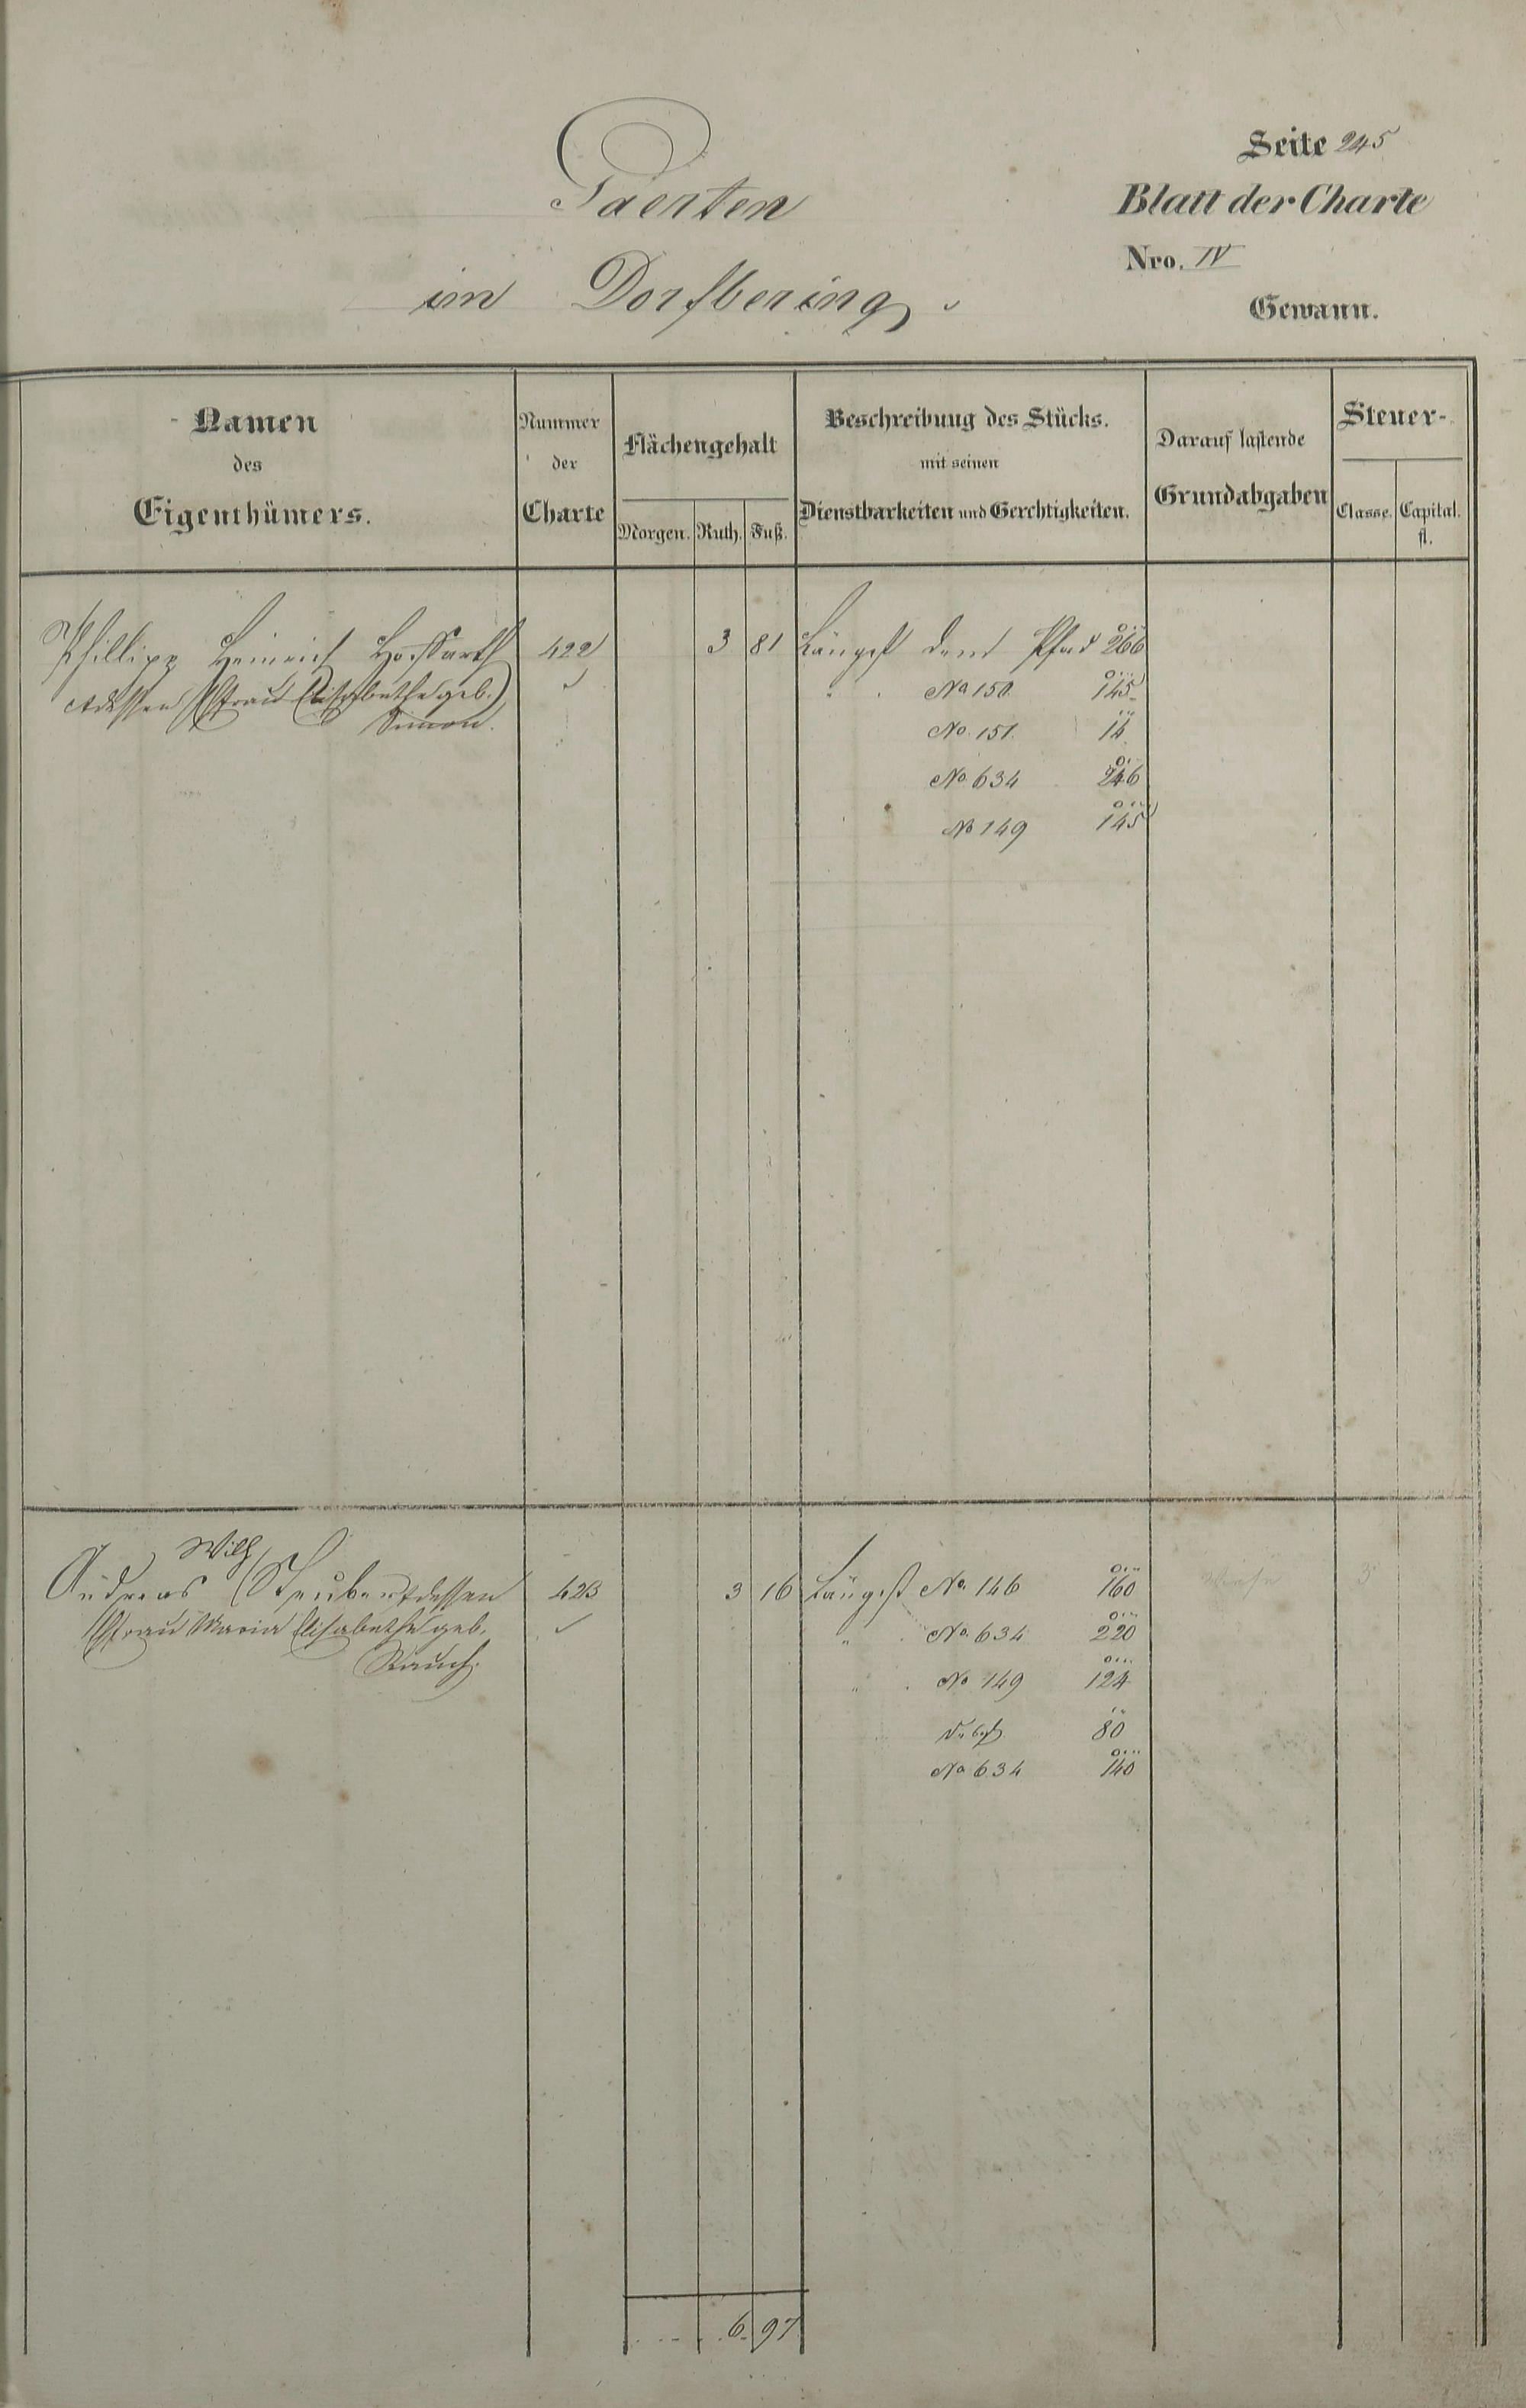 Seite 245
Gaerten
Blatt der Charte
Nro. IV
im Dorfbering
Gewann.
Namen
des
Eigenthümers.
Nummer
der
Charte
Flächengehalt
Morgen. Ruth. Fuß.
Beschreibung des Stücks.
mit seinen
Dienstbarkeiten und Gerechtigkeiten.
Darauf lastende
Grundabgaben
Steuer-
Classe. Capital.
fl.
Phillipp Heinrich Hossarth 422 3 81 Längst dem Pfad 266
dessen Ehfrau Elisabetha geb. " No 150. 145
Simon. No. 151. 14
No. 634 246
No 149 145
Wilh
Andreas Steuber dessen 423 3 16 Längst No. 146 160
Ehfrau Maria Elisabetha geb. " No. 634 220
Rauch. " No 149 124
80
No 634 140
6 97